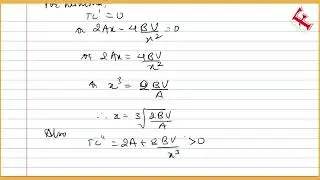 For minima,
TC' = 0
or 2Ax - 4BV/x² = 0
or 2Ax = 4BV/x²
or x³ = 2BV/A
∴ x = 3√(2BV/A)
Also
TC'' = 2A + 8BV/x³ > 0